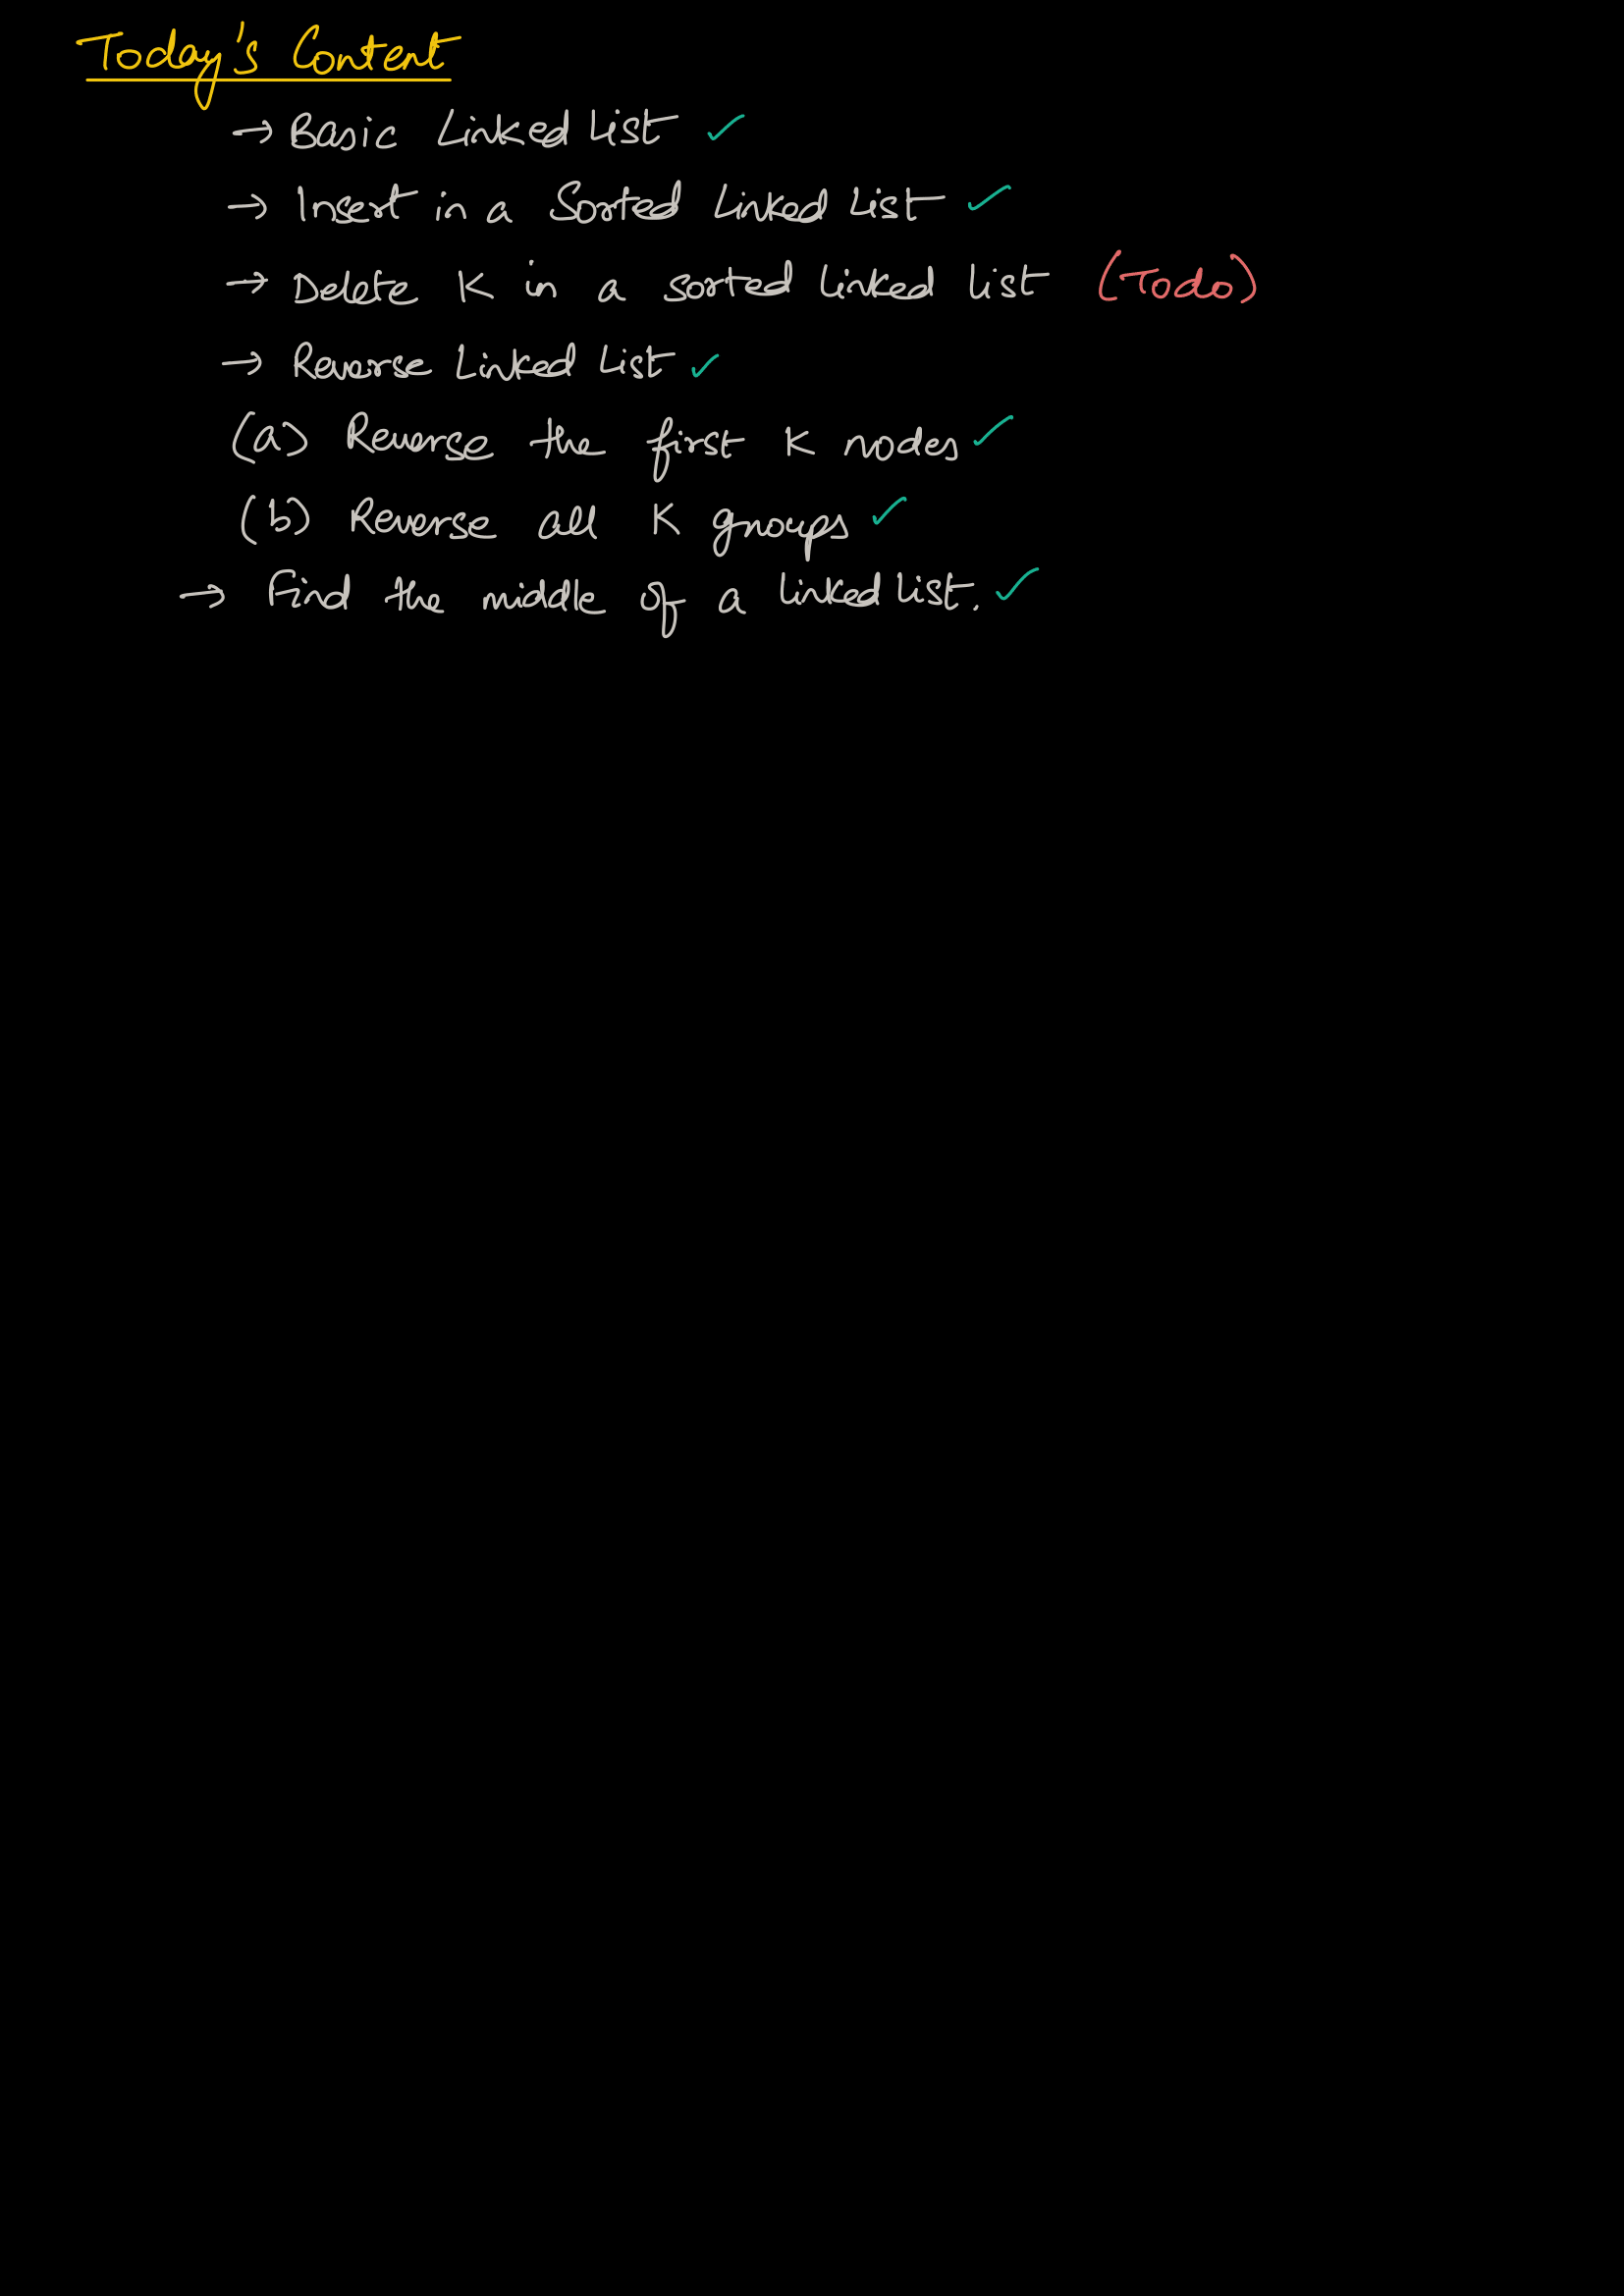 Today's Content
→ Basic Linked List ✓
→ Insert in a Sorted Linked List ✓
→ Delete K in a sorted linked list (Todo)
→ Reverse Linked List ✓
(a) Reverse the first K nodes ✓
(b) Reverse all K groups ✓
→ Find the middle of a linked list. ✓